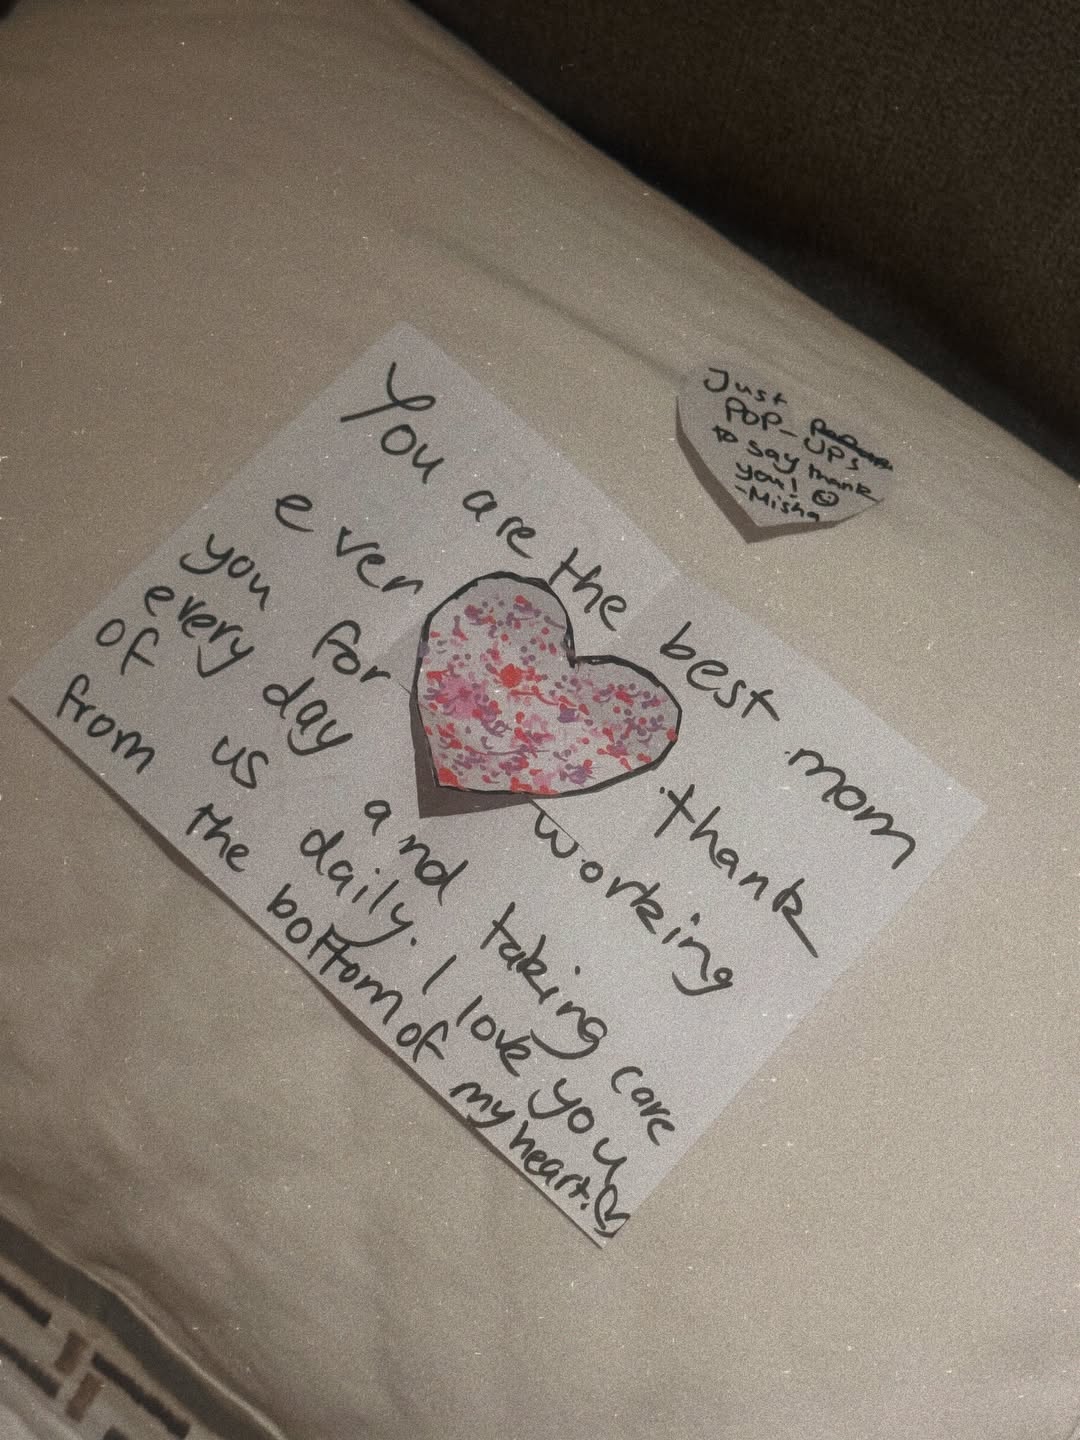 You are the best mom
ever thank
you for working
every day and taking care
of us daily. I love you
from the bottom of my heart. ♡
Just
POP-UPs
to say thank
you! ☺
-Misha